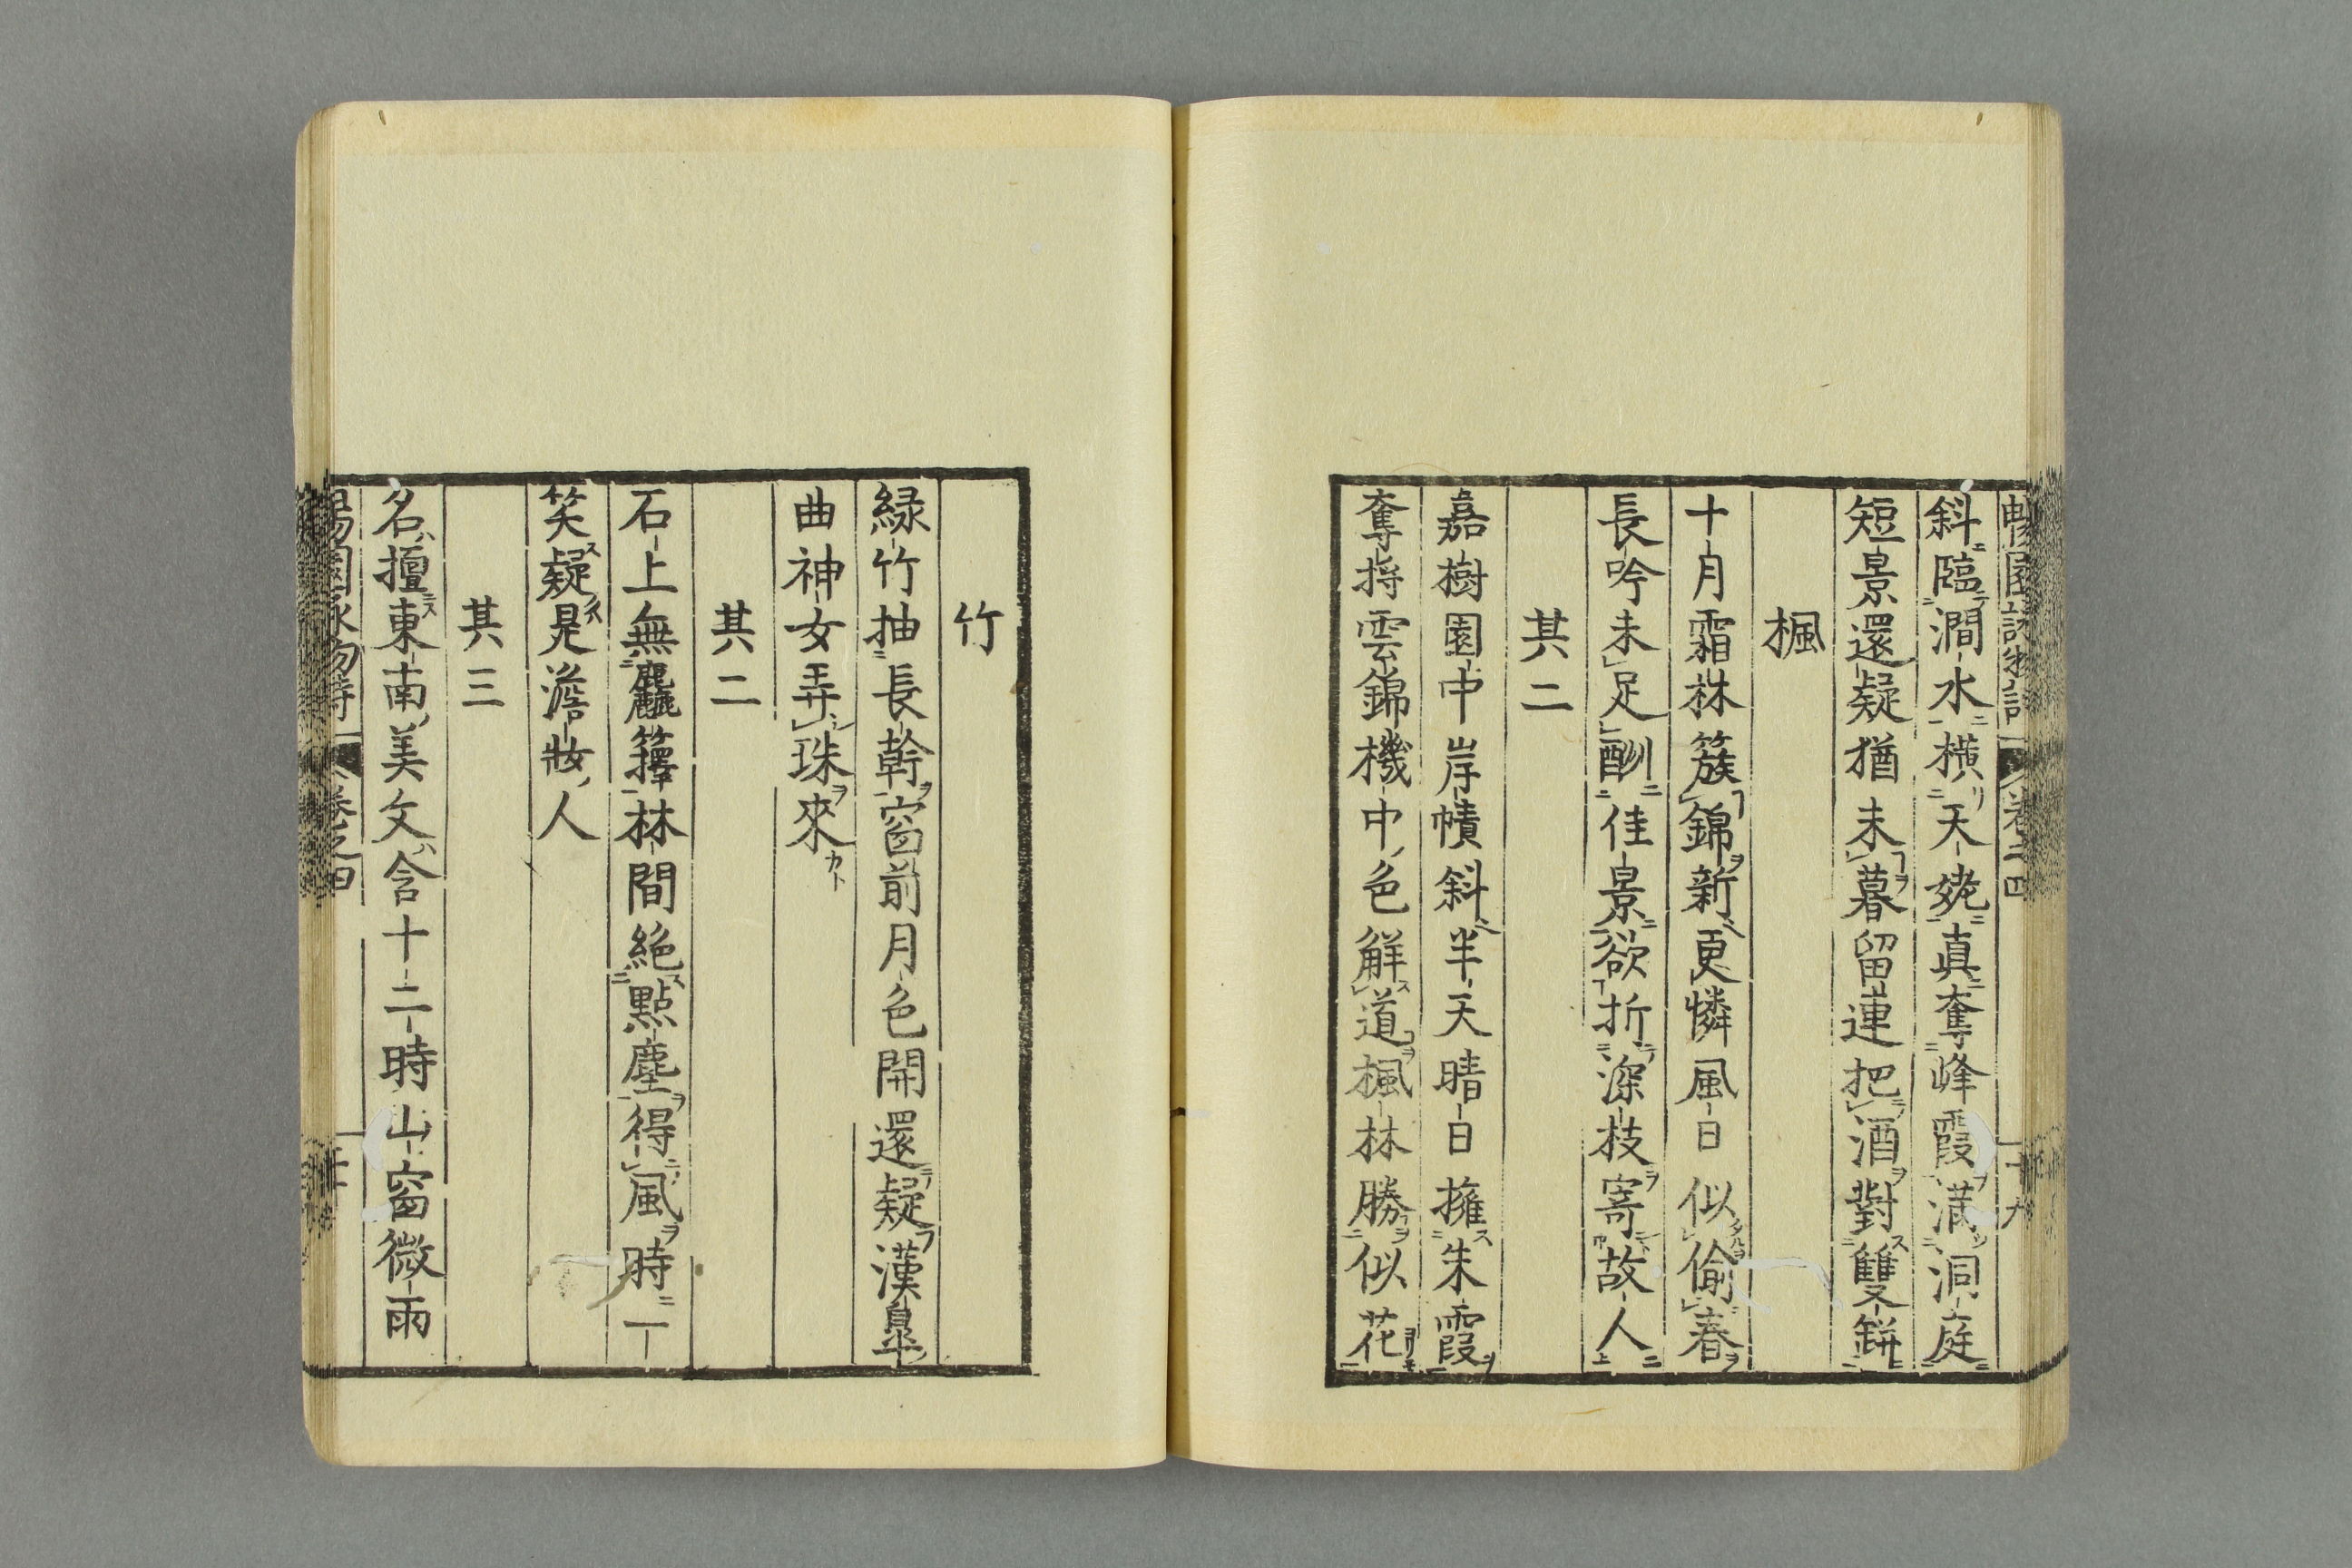 斜臨澗水橫天姥真奪峰霞滿洞庭
短景還疑猶未暮留連把酒對雙缾
楓
十月霜林簇錦新更憐風日似偷春
長吟未足酬佳景欲折深枝寄故人
其二
嘉樹園中岸幘斜半天晴日擁朱霞
奪将雲錦機中色觧道楓林勝似花
竹
緑竹抽長幹窗前月色開還疑漢皐
曲神女弄珠來
其二
石上無麤籜林間絶點塵得風時一
笑疑是澹妝人
其三
名擅東南美文含十二時山窗微雨